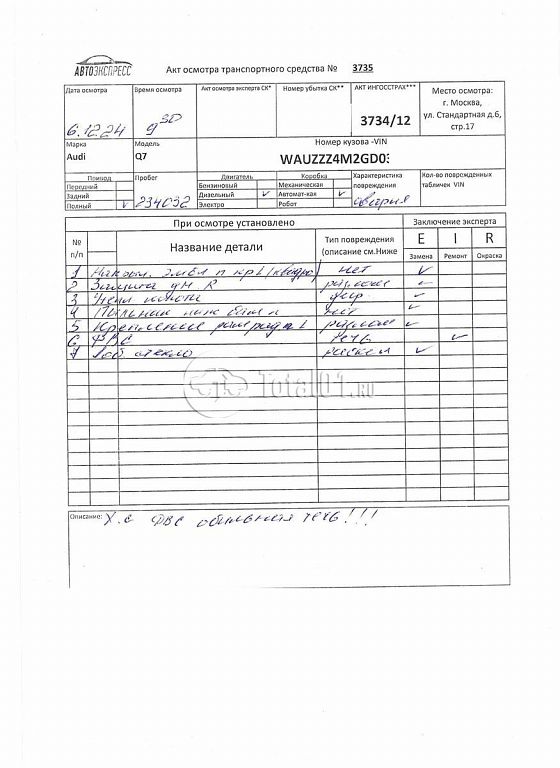 АВТОЭКСПРЕСС
Акт осмотра транспортного средства № 3735
Дата осмотра Время осмотра Акт осмотра эксперта СК* Номер убытка СК** АКТ ИНГОССТРАХ*** Место осмотра:
г. Москва,
ул. Стандартная д.6,
стр.17
6.12.24 9 30 3734/12
Марка Модель Номер кузова -VIN
Audi Q7 WAUZZZ4M2GD0
Привод Пробег Двигатель Коробка Характеристика повреждения Кол-во поврежденных табличек VIN
Передний Бензиновый Механическая
Задний Дизельный V Автомат-кая V авария
Полный V 234032 Электро Робот
При осмотре установлено Заключение эксперта
№ п/п Название детали Тип повреждения (описание см.Ниже E I R
Замена Ремонт Окраска
1 нет V
2 Защита R
3
4 Пыльник нет
5 Крепление L
6 ДВС течь V
7 Лоб стекло раскол V
Total01.RU
Описание: Х.с ДВС обильная течь!!!